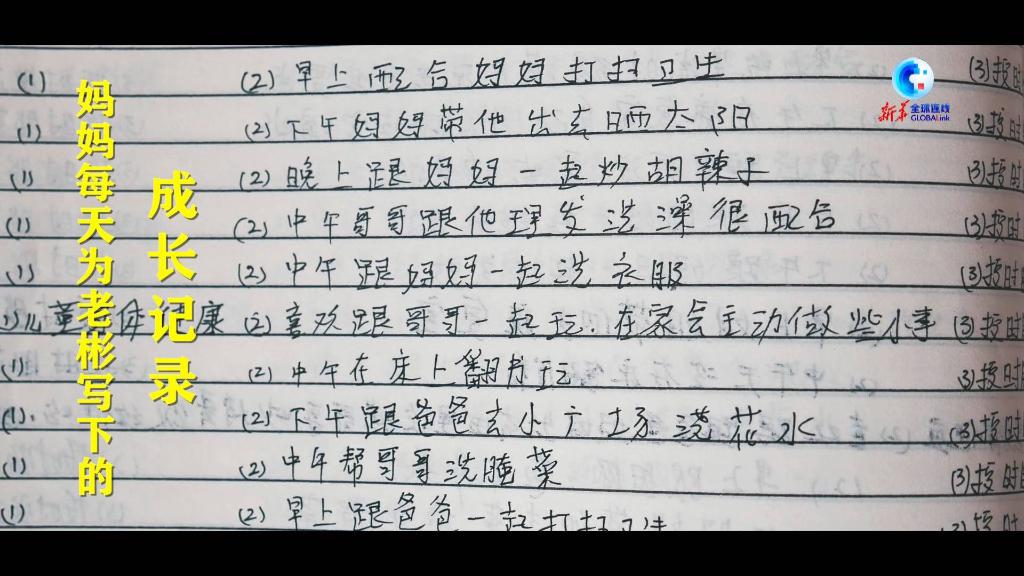 妈妈每天为老彬写下的
成长记录
新华 全球连线
GLOBALink
(1) (2) 早上配合妈妈打扫卫生 (3) 按时
(1) (2) 下午妈妈带他出去晒太阳 (3) 按时
(1) (2) 晚上跟妈妈一起炒胡辣子 (3) 按时
(1) (2) 中午哥哥跟他理发洗澡很配合 (3) 按时
(1) (2) 中午跟妈妈一起洗衣服 (3) 按时
(1) 儿童 体 康 (2) 喜欢跟哥哥一起玩.在家会主动做些小事 (3) 按时
(1) (2) 中午在床上翻书玩 (3) 按时
(1). (2) 下午跟爸爸去小广场浇花水 (3) 按时
(1) (2) 中午帮哥哥洗腌菜 (3) 按时
(1) (2) 早上跟爸爸一起打扫卫生 (3) 按时